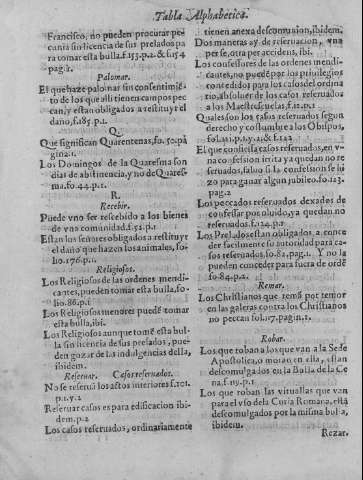 Tabla Alphabetica.
Francisco, no pueden procurar pe-
cunia sin licencia de sus prelados pa
ra tomar esta bulla.f.153.p.2.&f.154
pag.1.
Palomar.
El que haze palomar sin consentimiẽ-
to de los que alli tienen campos pec
can, y estan obligados a restituyr el
daño, f.185.p.1.
Q.
Que significan Quarentenas, fo.50.pa
gina.1.
Los Domingos de la Quaresma son
dias de abstinencia, y no de Quares-
ma. fo.44.p.1.
R.
Recebir.
Puede vno ser rescebido a los bienes
de vna comunidad.f.51.p.1
Estan los señores obligados a restituyr
el daño que hazen los animales, fo-
lio.176.p.1.
Religiosos.
Los Religiosos de las ordenes mendi-
cantes, pueden tomar esta bulla, fo-
lio.86.p.1
Los Religiosos menores puedẽ tomar
esta bulla, ibi.
Los Religiosos aunque tomẽ esta bul-
la sin licencia de sus prelados, pue-
den gozar de la indulgencias della,
ibidem.
Reseruar. Casos reseruados.
No se reserua los actos interiores f.101.
p.1.y.2
Reseruar casos es para edificacion ibi-
dem.p.2
Los casos reseruados, ordinariamente
tienen anexa descomunion, ibidem.
Dos maneras ay de reseruacion, vna
per se, otra per accidens, ibi.
Los confessores de las ordenes mendi-
cantes, no puedẽ por los priuilegios
concedidos para los casos del ordina
rio, absoluer de los casos reseruados
a los Maestrescuelas, f.112.p.1
Quales son los casos reseruados segun
derecho y costumbre a los Obispos,
El que confiessa casos reseruados, en v-
na confession irrita ya quedan no re
seruados, saluo si la confession se hi
zo para ganar algun jubileo.fo.123.
pag.2
Los peccados reseruados dexados de
confessar por oluido, ya quedan no
reseruados.fo.124.p.1
Los Prelados estan obligados a conce
der facilmente su autoridad para ca-
sos reseruados.fo.82.pag.1. Y no la
pueden conceder para fuera de ordẽ
fo.84.p.2.
Remar.
Los Christianos que remã por temor
en las galeras contra los Christianos
no peccan fol.117.pagin.1.
Robar.
Los que roban a los que van a la Sede
Apostolica, o moran en ella, estan
descomulgados en la Bulla de la Ce
na.f.119.p.1
Los que roban las vituallas que van
para el vso dela Curia Romana, está
descomulgados por la misma bulla,
ibidem.
Rezar.